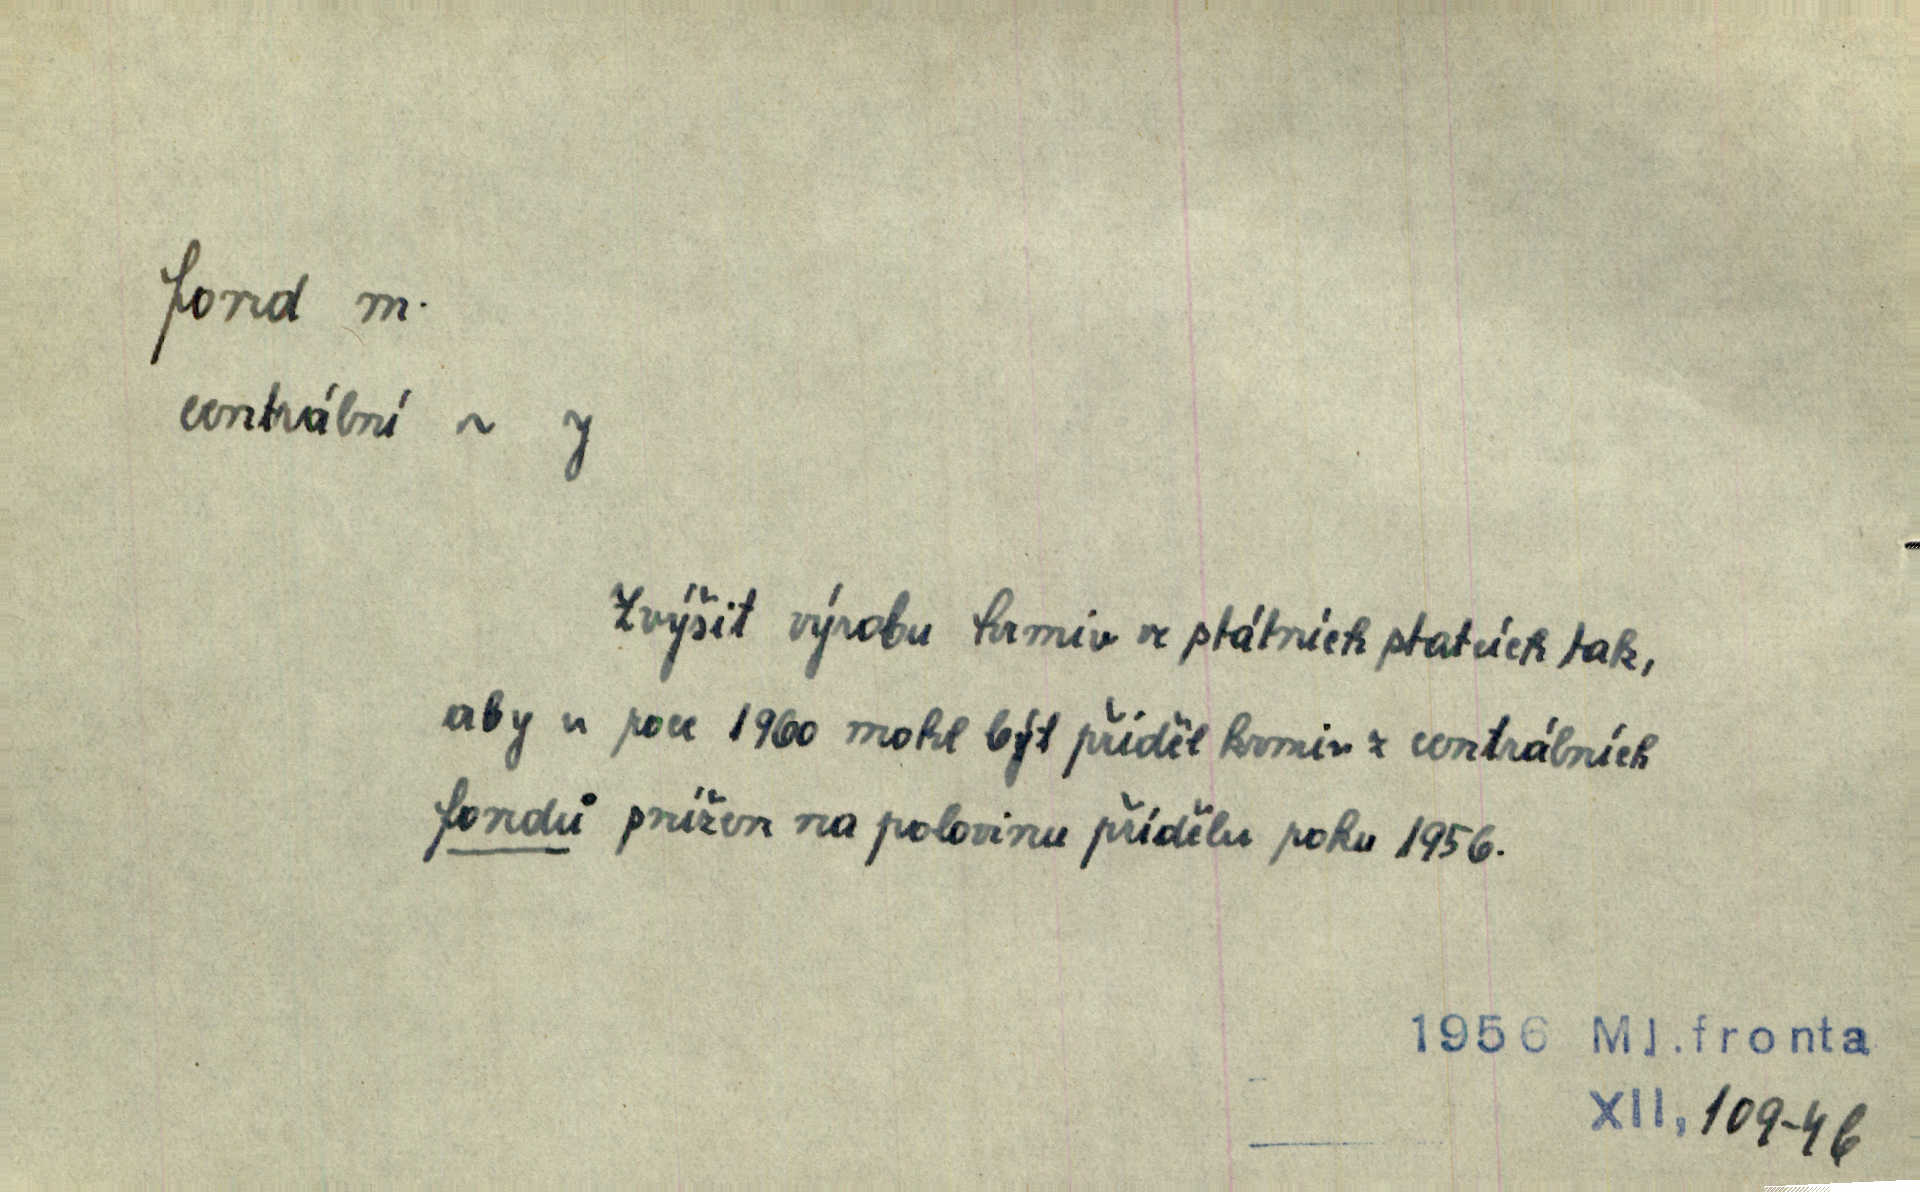 fond m.
centrální ~ y
Zvýšit výrobu krmiv ve státních statcích tak,
aby v roce 1960 mohl být příděl krmiv z centrálních
fondů snížen na polovinu přídělu roku 1956.
1956 Ml.fronta
XII, 109-4b